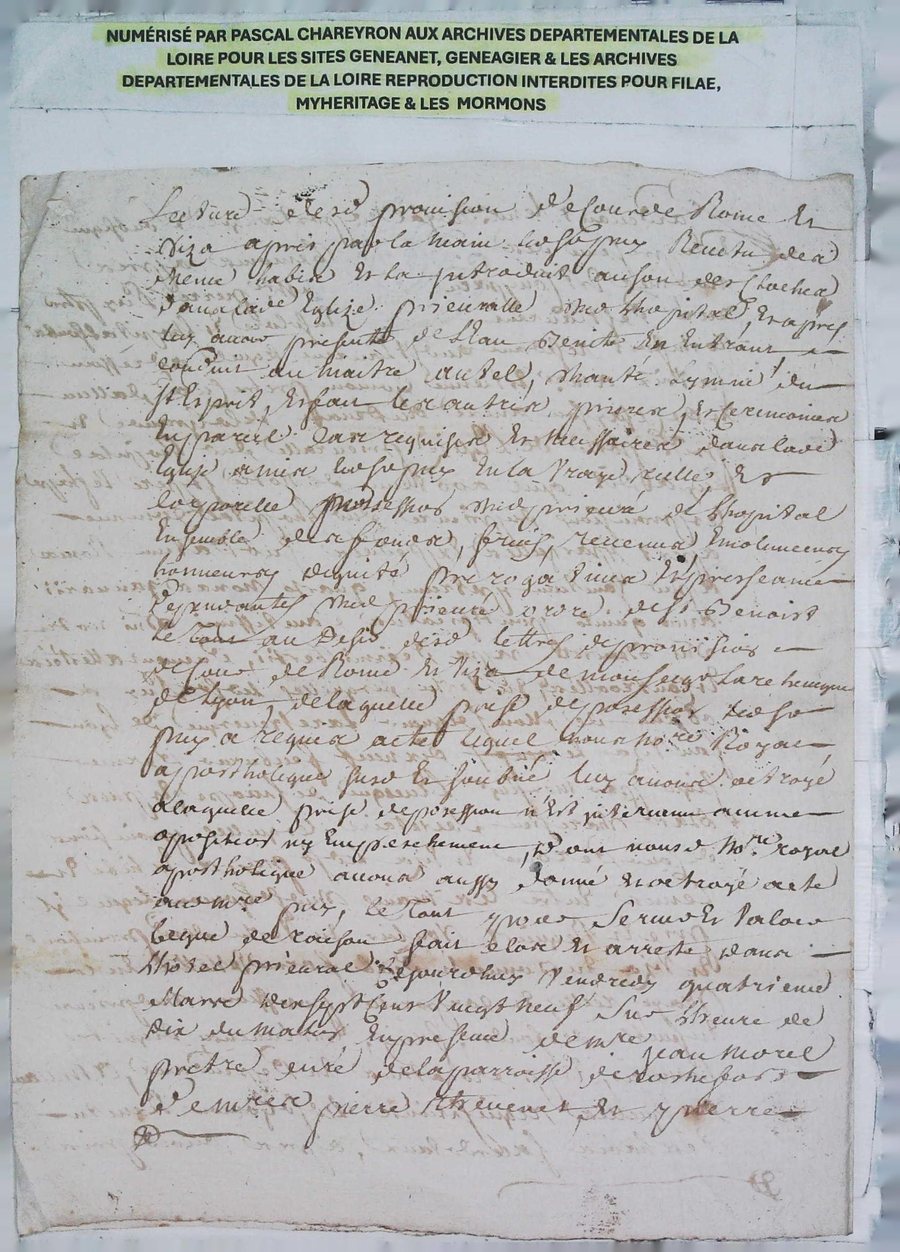 NUMÉRISÉ PAR PASCAL CHAREYRON AUX ARCHIVES DEPARTEMENTALES DE LA
LOIRE POUR LES SITES GENEANET, GENEAGIER & LES ARCHIVES
DEPARTEMENTALES DE LA LOIRE REPRODUCTION INTERDITES POUR FILAE,
MYHERITAGE & LES MORMONS
Lecture desd provision de Cour de Rome et
viza apres par la main Revetu des
meme habis et la introduit au son des Cloches
dans lade Eglize prieuralle Lhopital, et apres
luy avoir presenté de Leau Benite en Entrant
conduit au maitre autel, chanté Lymne du
St Esprit, et fait les autres prieres et Ceremonies
En pareil Cas requises et nessaires dans lade
Eglize a mis En la vraye reelle et
Corporelle possession dud prieuré de Lhopital
Ensemble des fonds, fruis, revenus, Emolumens
honneurs dignité prerogatives et presseance
dependantes dud prieuré ordre de St Benoist
le tout au desir desd lettres de provision
de Cour de Rome et viza de monseigr Larcheveque
de Lyon, de laquelle prise de possession
puy a requis acte lequel nous nore Royal
apostholique et soubné luy avons octroyé
a laquelle prise de possession n'est intervenu aucune
oposition ny Empeschement, dont nousd Nore royal
apostholique avons aussy donné et octroyé acte
aud mre puy, le tout pour servir et valoir
de raison fait clos et arresté dans
Lhotel prieural Cejourdhuy vendredy quatrieme
Mars dix sept Cent vingt neuf sur Lheure de
dix du matin En presence de mre jean morel
pretre curé de la parroisse de rochefort
de mres pierre thevenet et pierre